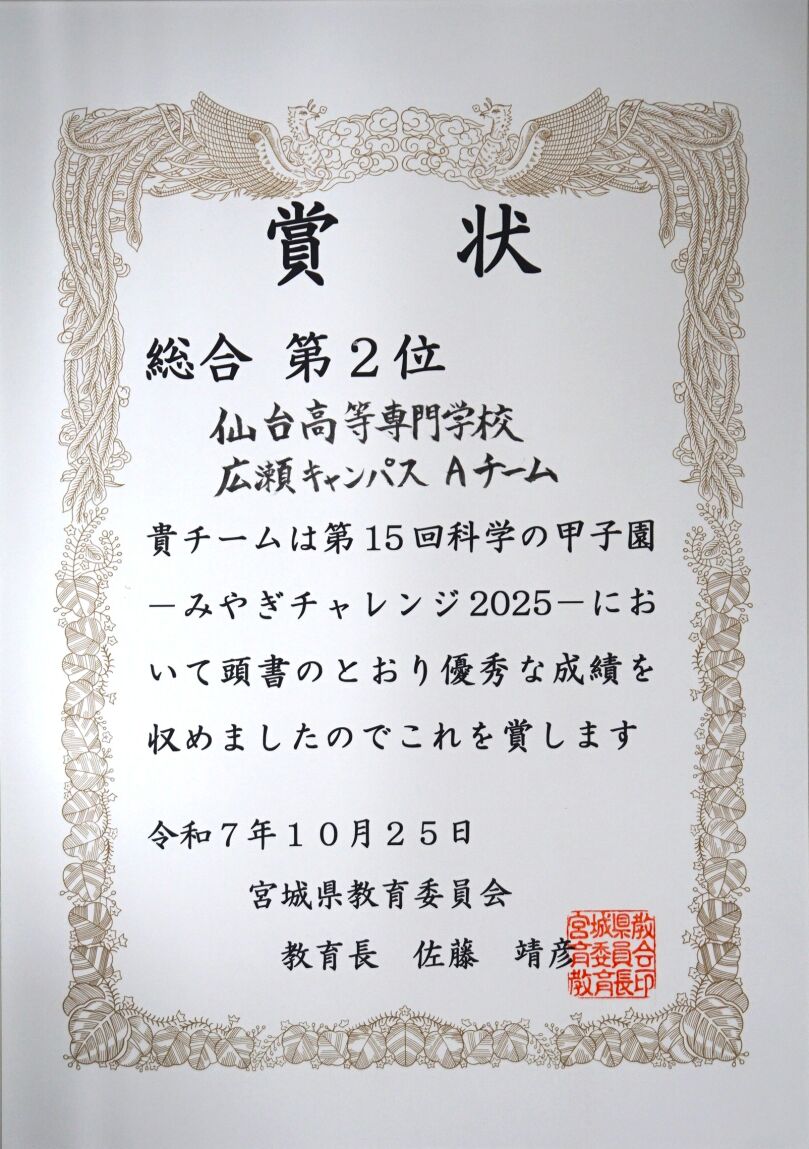 賞 状
総合 第２位
仙台高等専門学校
広瀬キャンパス Aチーム
貴チームは第15回科学の甲子園
－みやぎチャレンジ2025－にお
いて頭書のとおり優秀な成績を
収めましたのでこれを賞します
令和７年１０月２５日
宮城県教育委員会
教育長 佐藤 靖彦
宮城県教
育委員会
教育長印